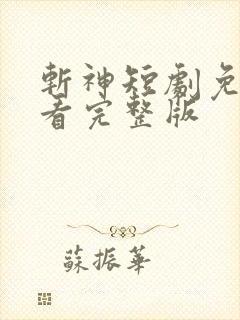 斬神短劇免
看完整版
蘇振華